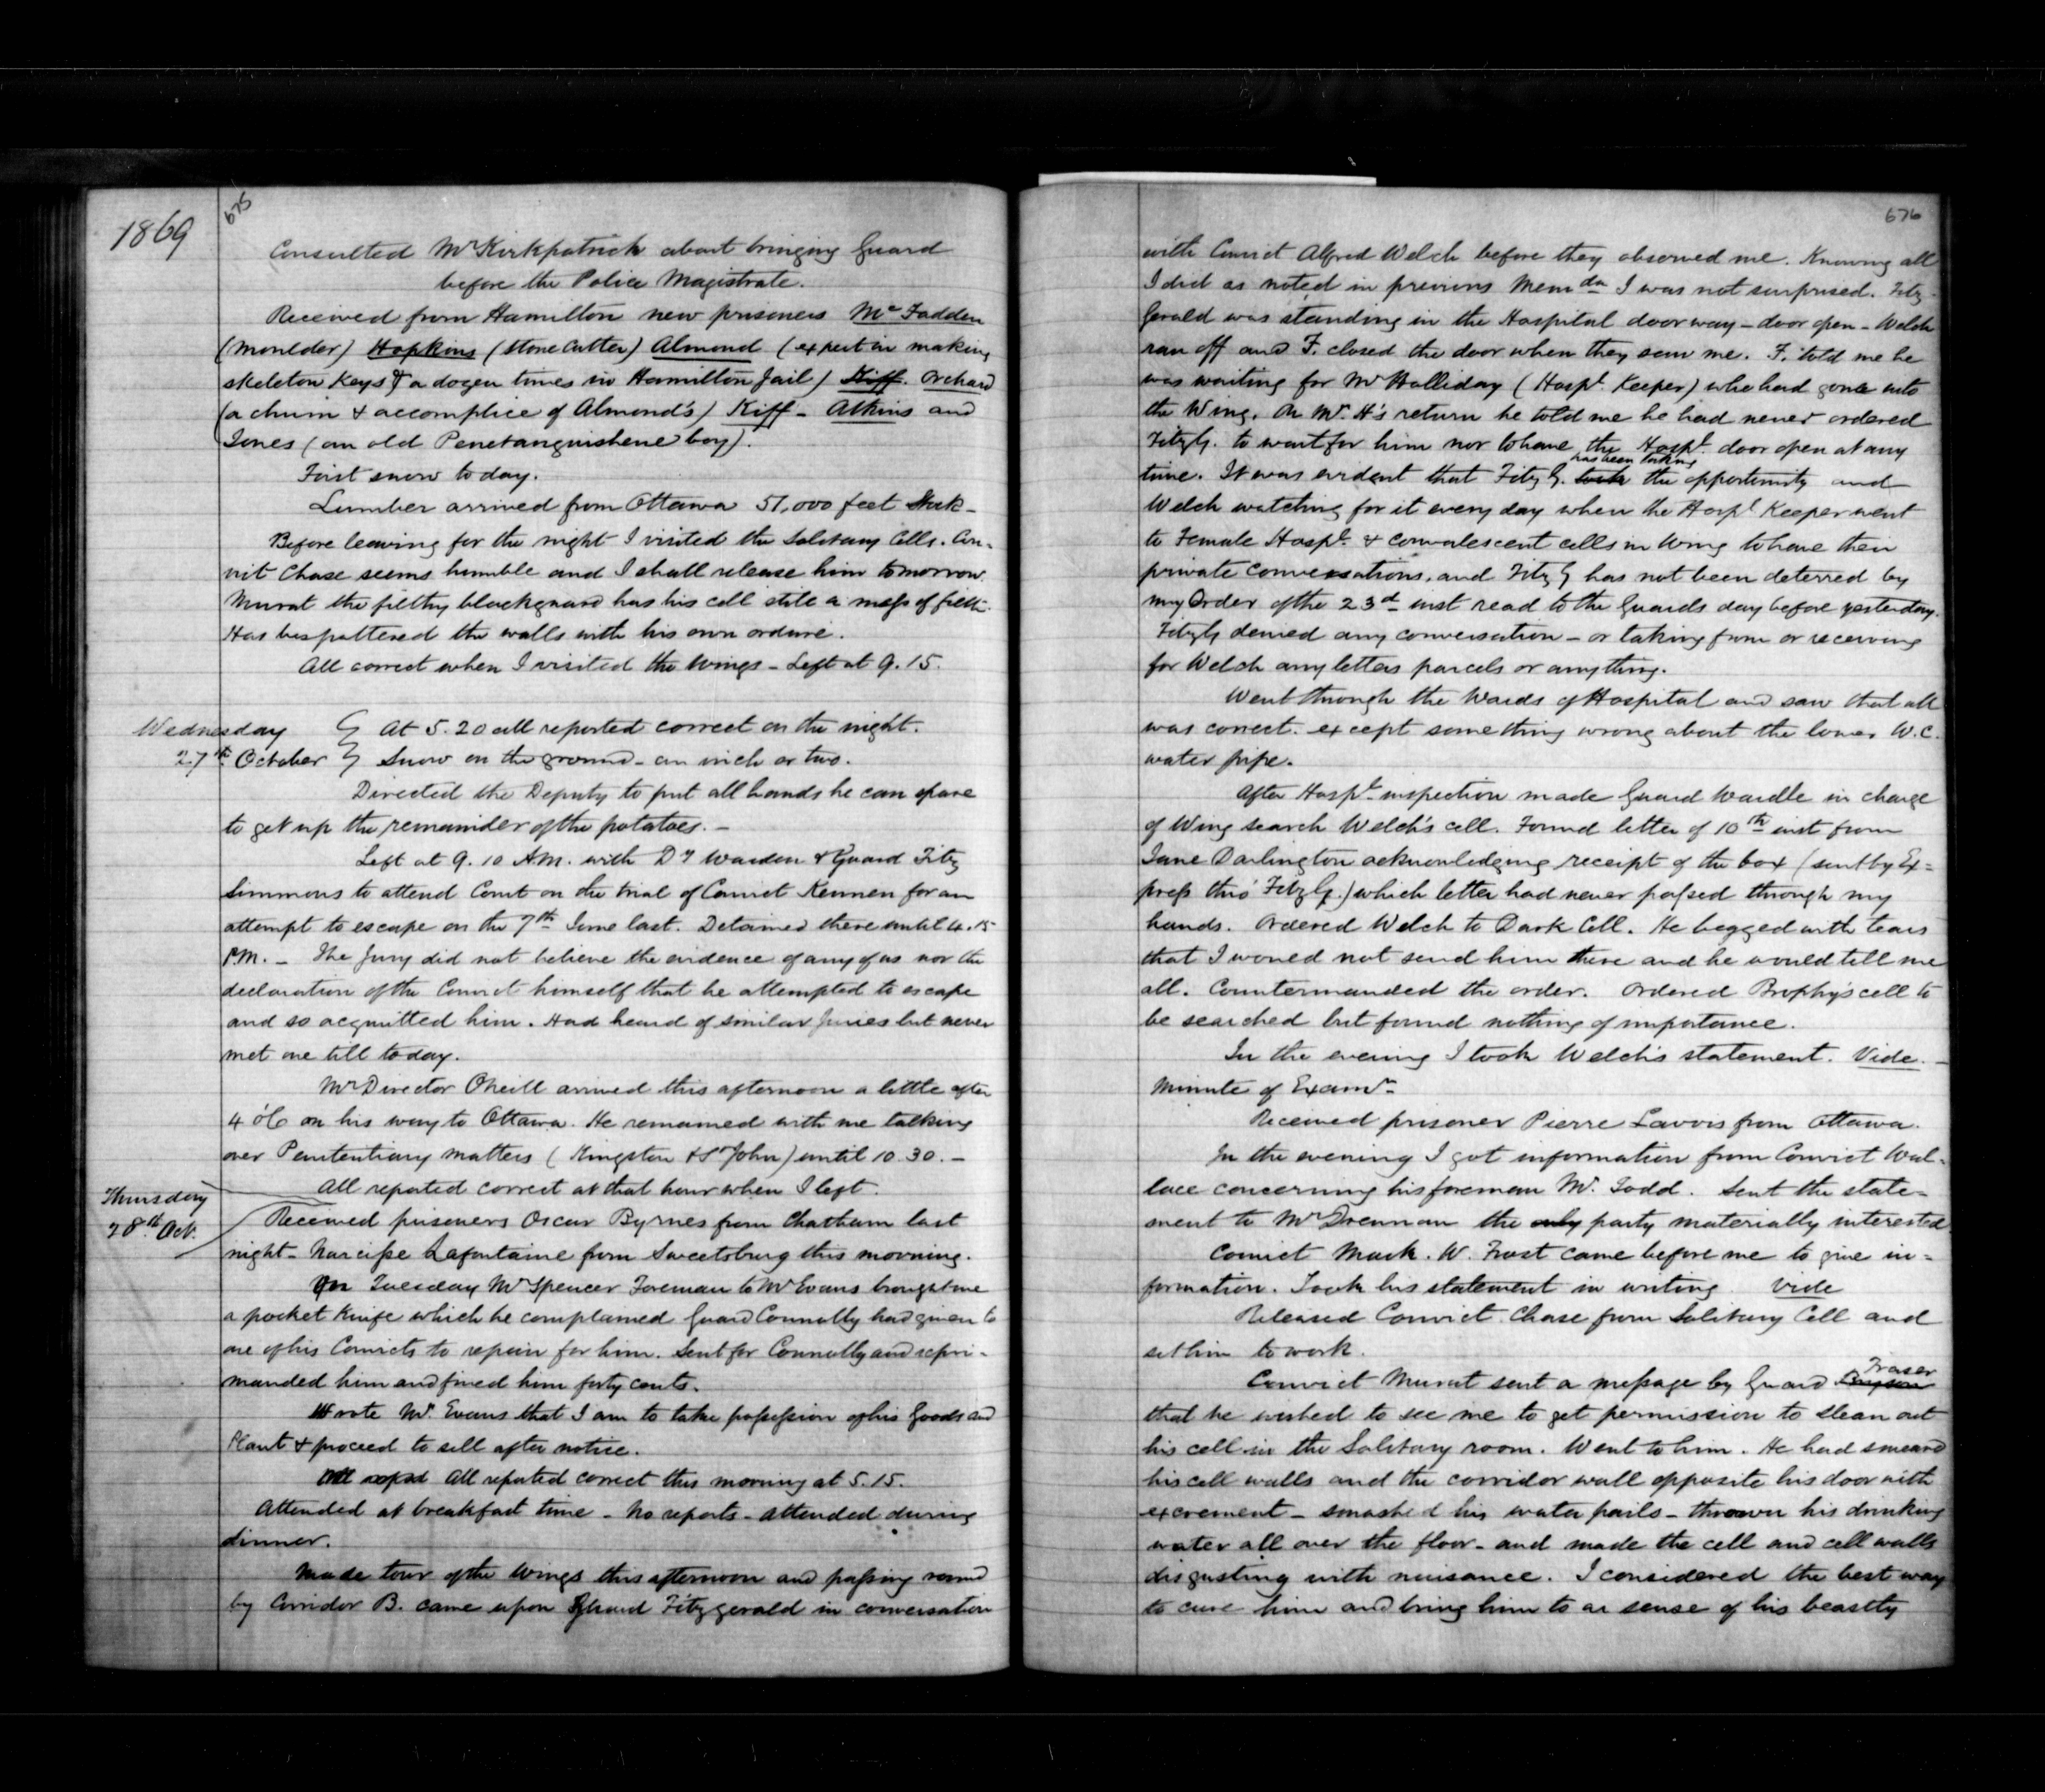 1869
675
Consulted Mr Kirkpatrick about bringing Guard
before the Police Magistrate.
Received from Hamilton new prisoners McFadden
(moulder) Hopkins (stone cutter) Almond (expert in making
skeleton keys & a dozen times in Hamilton Jail) Kiff. Orchard
(a chum & accomplice of Almond's) Kiff - Atkins and
Jones (an old Penetanguishene boy).
First snow to day.
Lumber arrived from Ottawa 51,000 feet Stock -
Before leaving for the night I visited the Solitary Cells. Con-
vict Chase seems humble and I shall release him tomorrow.
Murat the filthy blackguard has his cell still a mess of filth.
Has bespattered the walls with his own ordure.
All correct when I visited the Wings - Left at 9.15.
Wednesday
27th October
At 5.20 all reported correct on the night.
Snow on the ground - an inch or two.
Directed the Deputy to put all hands he can spare
to get up the remainder of the potatoes. -
Left at 9.10 A.M. with Dy Warden & Guard Fitz
Simmons to attend Court on the trial of Convict Kennen for an
attempt to escape on the 7th June last. Detained there until 4.15
P.M. - The Jury did not believe the evidence of any of us nor the
declaration of the Convict himself that he attempted to escape
and so acquitted him. Had heard of similar juries but never
met one till today.
Mr Director Oneill arrived this afternoon a little after
4 o'C on his way to Ottawa. He remained with me talking
over Penitentiary matters (Kingston & St John) until 10.30. -
All reported correct at that hour when I left.
Thursday
28th Oct.
Received prisoners Oscar Byrnes from Chatham last
night - Narcisse Lafontaine from Sweetsburg this morning.
On Tuesday Mr Spencer Foreman to Mr Evans brought me
a pocket knife which he complained Guard Connolly had given to
one of his Convicts to repair for him. Sent for Connolly and repri-
manded him and fined him forty cents.
Wrote Mr. Evans that I am to take possession of his Goods and
Plant & proceed to sell after notice.
All repd All reported correct this morning at 5.15.
Attended at breakfast time - No reports - attended during
dinner.
Made tour of the Wings this afternoon and passing round
by Corridor B. came upon Guard Fitzgerald in conversation
676
with Convict Alfred Welch before they observed me. Knowing all
I did as noted in previous Memda I was not surprised. Fitz-
Gerald was standing in the Hospital doorway - door open - Welch
ran off and F. closed the door when they saw me. F. told me he
was waiting for Mr Halliday (Hospl. Keeper) who had gone into
the Wing. On Mr. H's return he told me he had never ordered
FitzG. to wait for him nor to have the Hospl. door open at any
has been taking
time. It was evident that Fitz G. took the opportunity and
Welch watching for it every day when the Hospl. Keeper went
to Female Hospl. & convalescent cells in Wing to have their
private conversations, and Fitz G has not been deterred by
my Order of the 23d inst read to the Guards day before yesterday.
FitzG denied any conversation - or taking from or receiving
for Welch any letters parcels or anything.
Went through the Wards of Hospital and saw that all
was correct. except something wrong about the lower W.C.
water pipe.
After Hospl. inspection made Guard Wardle in charge
of Wing search Welch's cell. Found letter of 10th inst from
Jane Darlington acknowledging receipt of the box (sent by Ex=
press thro' FitzG.) which letter had never passed through my
hands. Ordered Welch to Dark Cell. He begged with tears
that I would not send him there and he would tell me
all. Countermanded the order. Ordered Brophy's cell to
be searched but found nothing of importance.
In the evening I took Welch's statement. Vide. -
Minute of Examn.
Received prisoner Pierre from Ottawa.
In the evening I got information from Convict Wal-
lace concerning his foreman Mr. Todd. Sent the state-
ment to Mr Drennan the only party materially interested
Convict Mark. W. Frost came before me to give in=
formation. Took his statement in writing. Vide
Released Convict Chase from Solitary Cell and
set him to work.
Fraser
Convict Murat sent a message by Guard
that he wished to see me to get permission to clean out
his cell in the Solitary room. Went to him. He had smeared
his cell walls and the corridor wall opposite his door with
excrement - smashed his water pails - thrown his drinking
water all over the floor - and made the cell and cell walls
disgusting with nuisance. I considered the best way
to cure him and bring him to a sense of his beastly